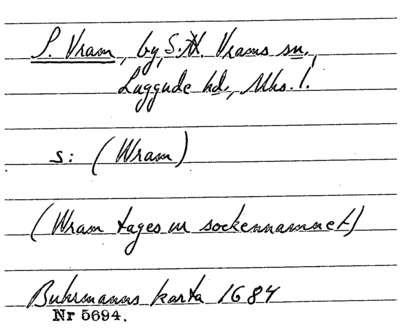 S. Vram, by, S. N. Vrams sn,
Luggude hd, Mhs. l.
s: (Wram)
(Wram tages ur sockennamnet)
Buhrmanns karta 1684
Nr 5694.